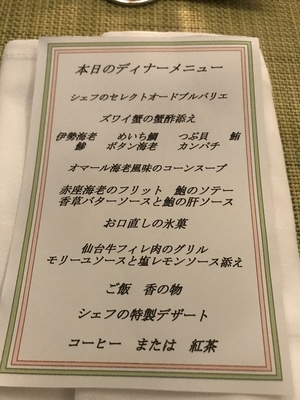 本日のディナーメニュー
シェフのセレクトオードブルバリエ
ズワイ蟹の蟹酢添え
伊勢海老 めいち鯛 つぶ貝 鮪
鯵 ボタン海老 カンパチ
オマール海老風味のコーンスープ
赤座海老のフリット 鮑のソテー
香草バターソースと鮑の肝ソース
お口直しの氷菓
仙台牛フィレ肉のグリル
モリーユソースと塩レモンソース添え
ご飯 香の物
シェフの特製デザート
コーヒー または 紅茶